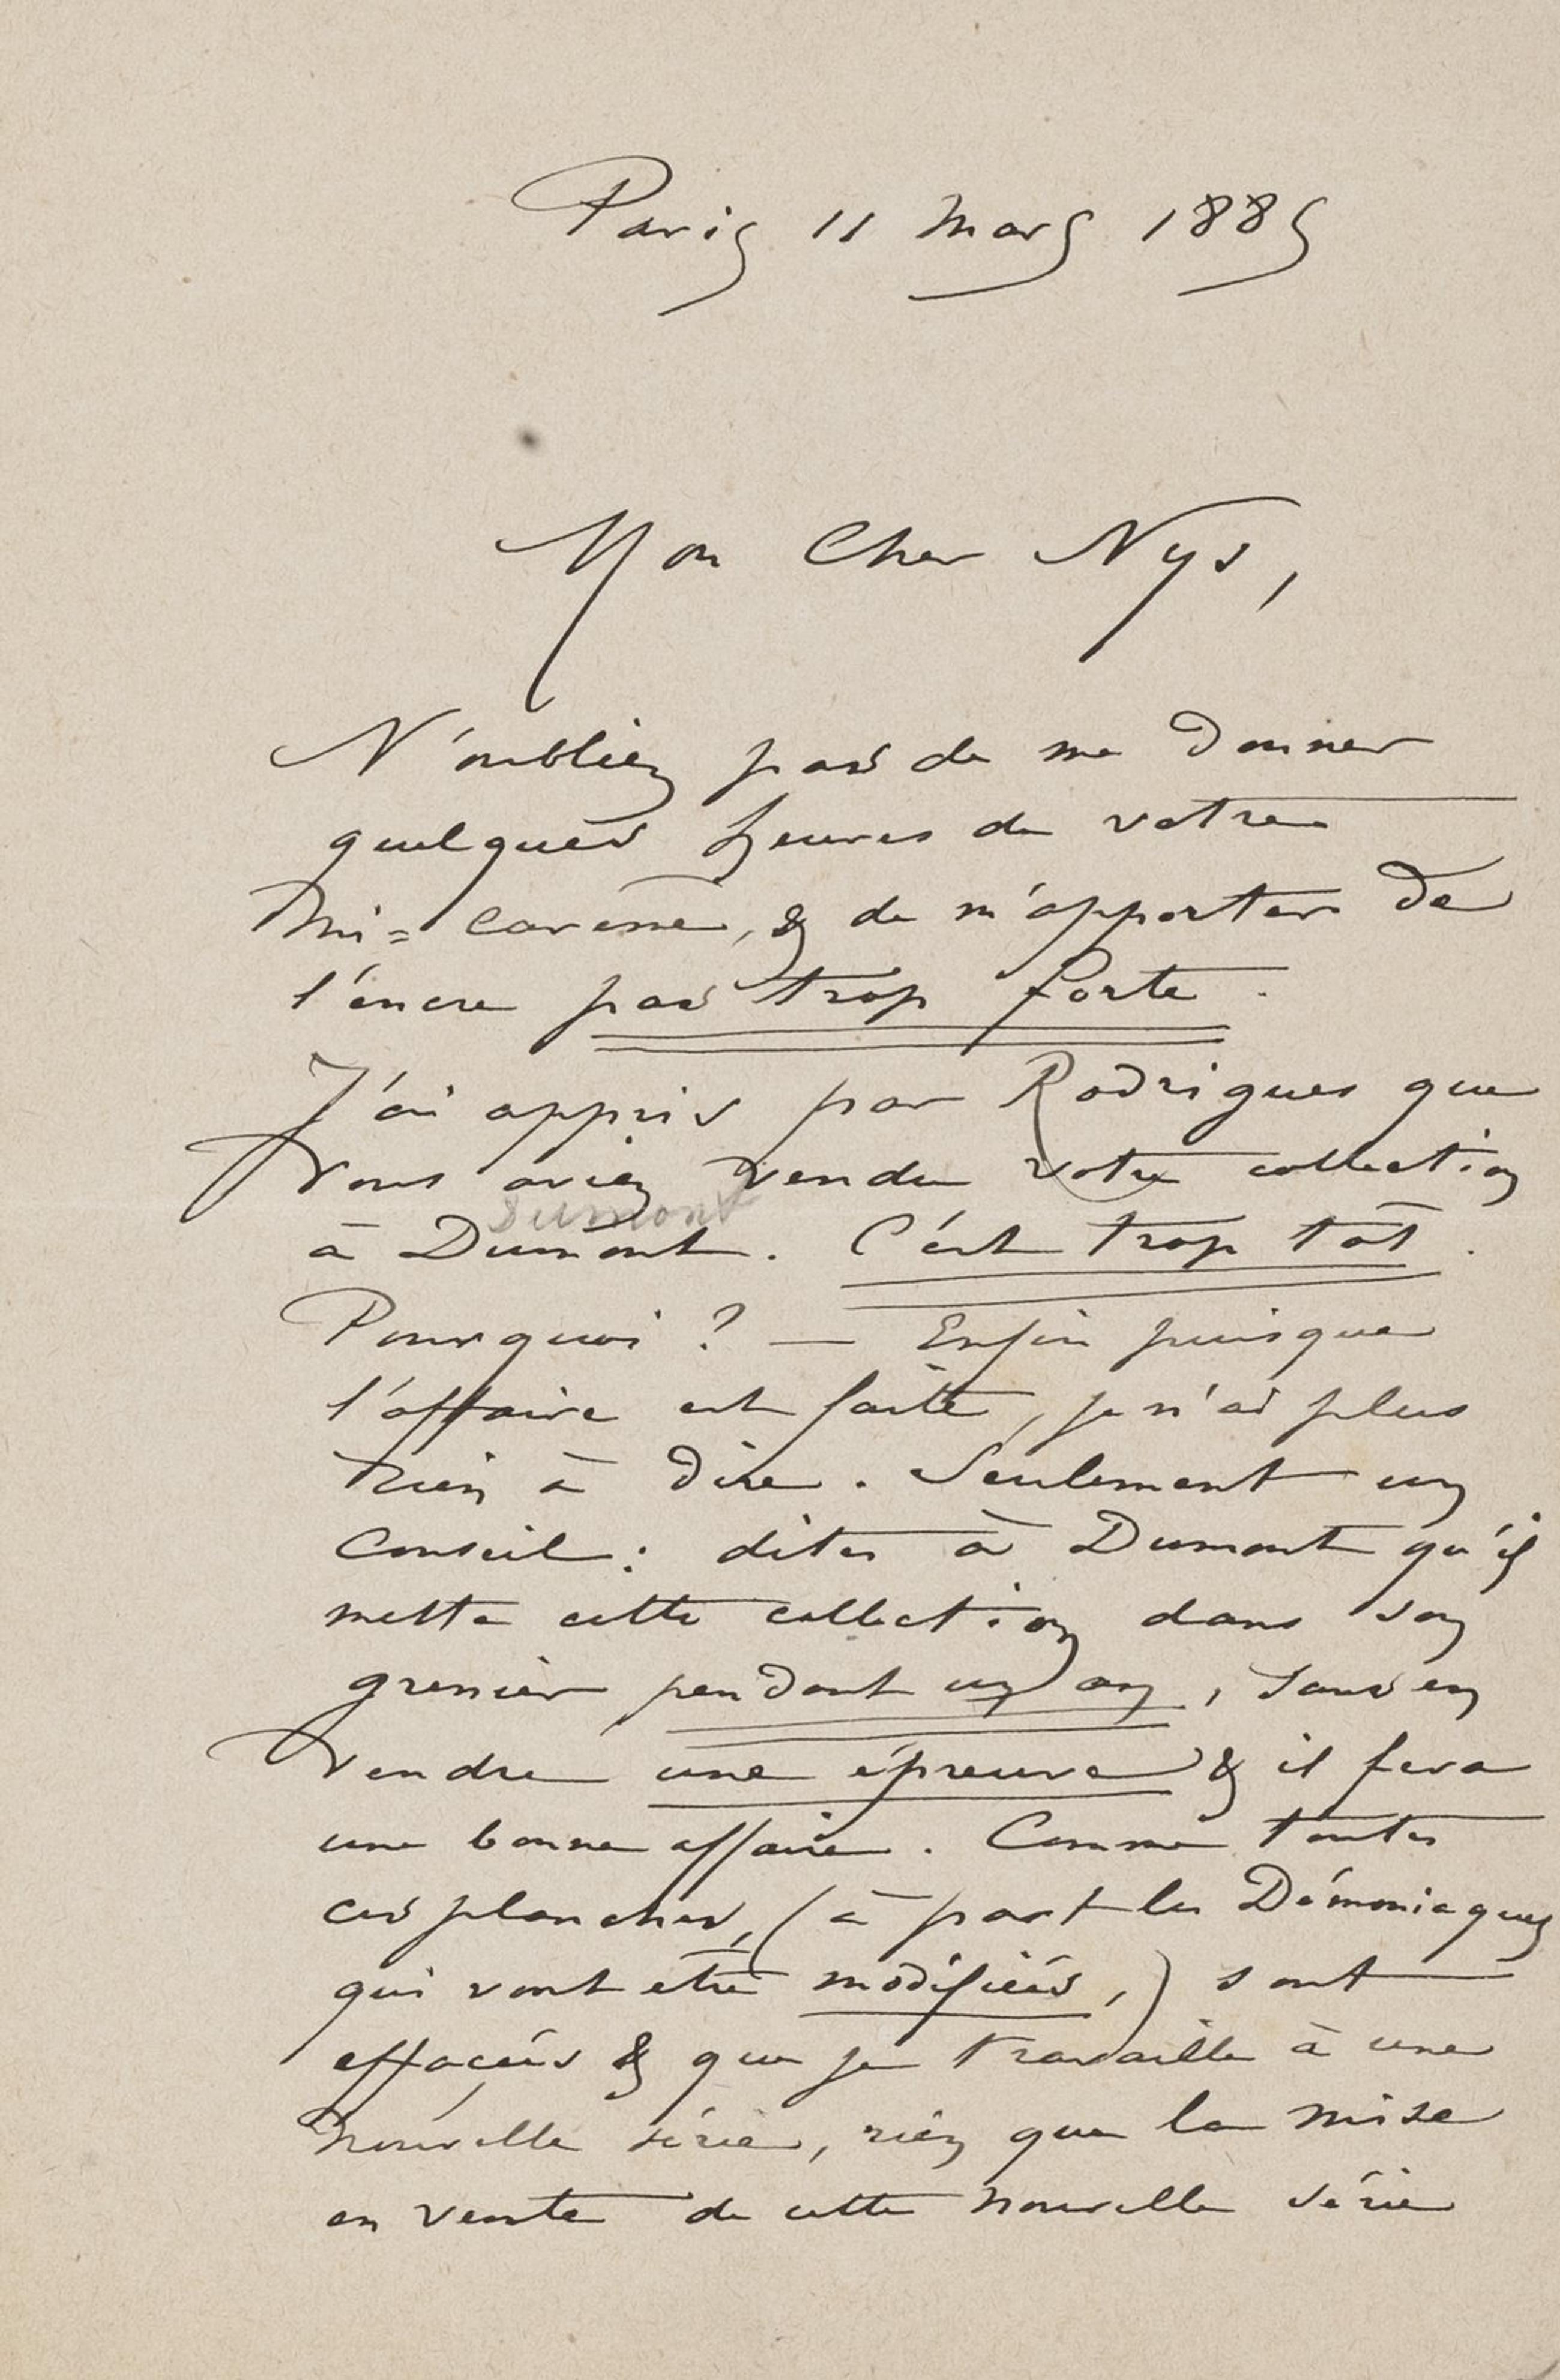 Paris 11 Mars 1885
Mon Cher Nys,
N'oubliez pas de me donner
quelques heures de votre
Mi=Carême, & de m'apporter de
l'encre pas trop forte.
J'ai appris par Rodrigues que
vous aviez vendu votre collection
Dumont
à Dumont. C'est trop tôt.
Pourquoi ? — Enfin puisque
l'affaire est faite, je n'ai plus
rien à dire. Seulement un
Conseil : dites à Dumont qu'il
mette cette collection dans son
grenier pendant un an, sans en
vendre une épreuve & il fera
une bonne affaire. Comme toutes
ces planches, (à part les Démoniaques
qui vont être modifiées,) sont
effacées & que je travaille à une
nouvelle série, rien que la mise
en vente de cette nouvelle série